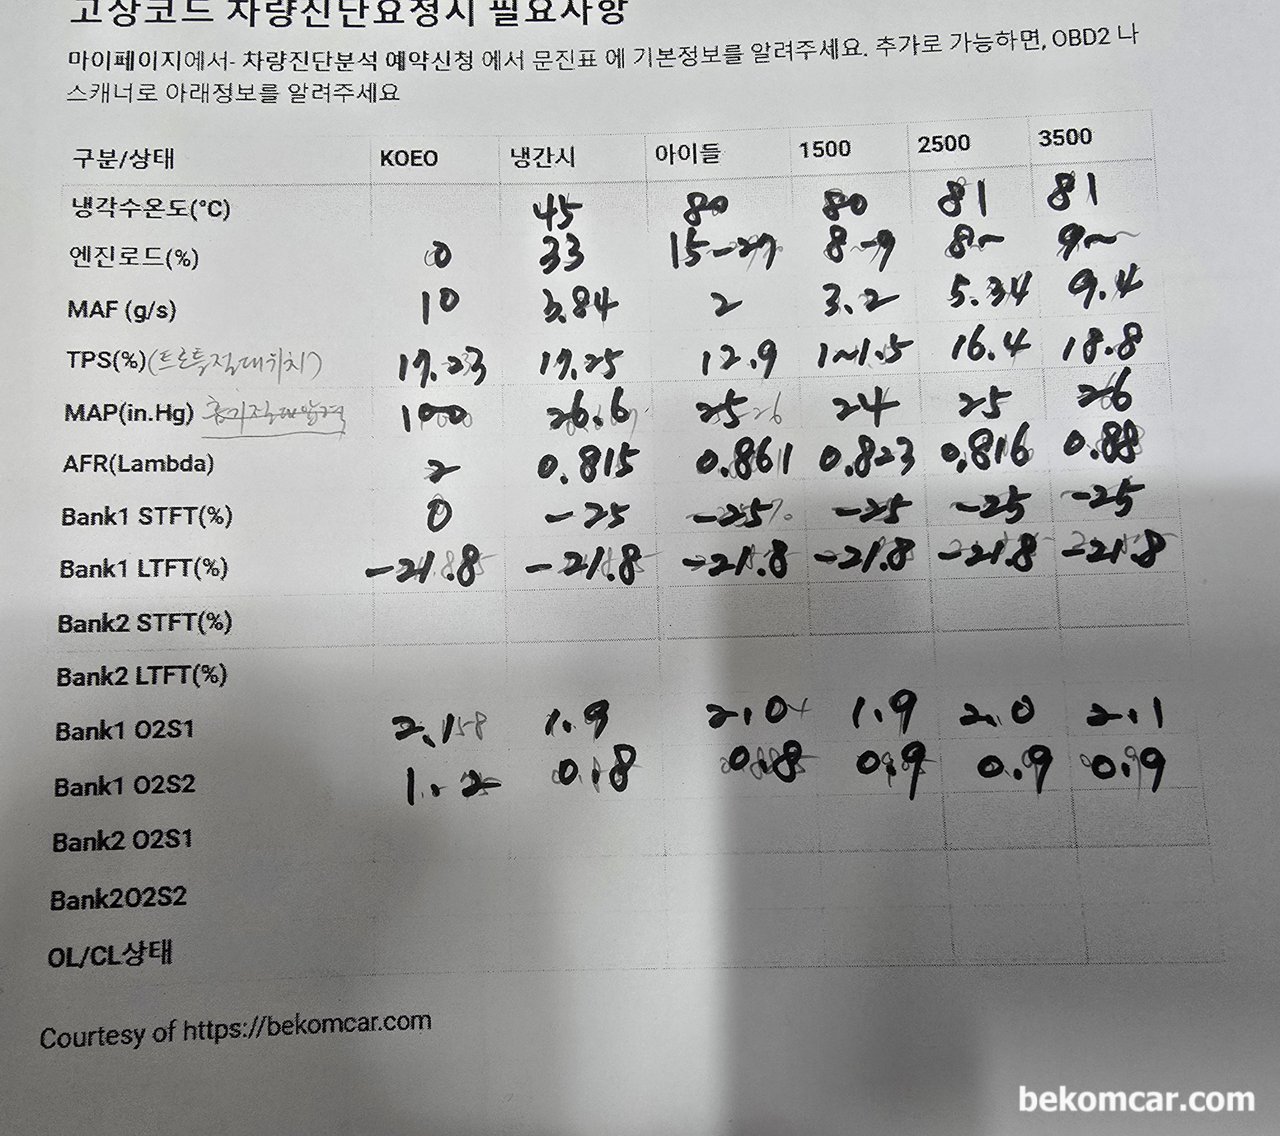 고장코드 차량진단요청시 필요사항
마이페이지에서- 차량진단분석 예약신청 에서 문진표 에 기본정보를 알려주세요. 추가로 가능하면, OBD2 나
스캐너로 아래정보를 알려주세요
구분/상태 KOEO 냉간시 아이들 1500 2500 3500
냉각수온도(°C) 45 80 80 81 81
엔진로드(%) 0 33 15-27 8-9 8~ 9~
MAF (g/s) 10 3.84 2 3.2 5.34 9.4
TPS(%) (트로틀절대위치) 17.23 17.25 12.9 1~1.5 16.4 18.8
MAP(in.Hg) 흡기절대압력 100 26.6 25 24 25 26
AFR(Lambda) 2 0.815 0.861 0.823 0.816 0.88
Bank1 STFT(%) 0 -25 -25% -25 -25 -25
Bank1 LTFT(%) -21.8 -21.8 -21.8 -21.8 -21.8 -21.8
Bank2 STFT(%)
Bank2 LTFT(%)
Bank1 O2S1 2.1 1.9 2.0 1.9 2.0 2.1
Bank1 O2S2 1.2 0.8 0.8 0.9 0.9 0.9
Bank2 O2S1
Bank2O2S2
OL/CL상태
Courtesy of https://bekomcar.com
bekomcar.com